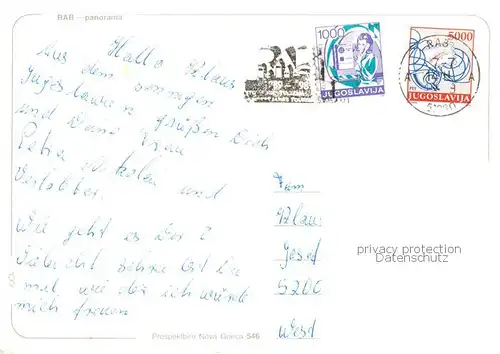 RAB —panorama
Hallo Klaus
Aus dem sonnigen
Jugoslawien grüßen Dich
und Deine Frau
Petra und
Verlobter.
Wie geht es Dir?
schreibst Du
mal wieder ich würde
mich freuen
1000
JUGOSLAVIJA
5000
PTT JUGOSLAVIJA
RAB
Fam
Klaus
Josef
5200
West
privacy protection
Datenschutz
Prospektbiro Nova Gorica 546